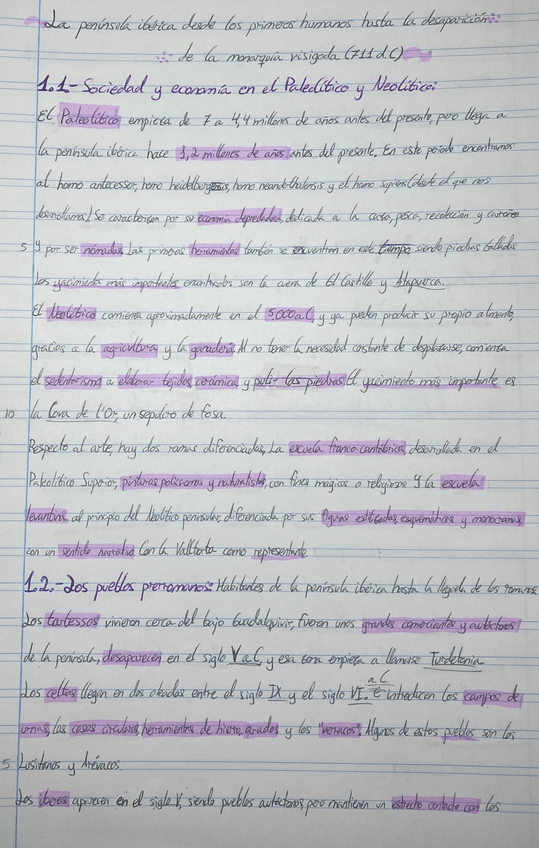 La península ibérica desde los primeros humanos hasta la desaparición
de la monarquía visigoda (711 d.C)
1.1.- Sociedad y economía en el Paleolítico y Neolítico:
El Paleolítico empieza de 7 a 4,4 millones de años antes del presente, pero llega a
la península ibérica hace 1,2 millones de años antes del presente. En este periodo encontramos
al homo antecessor, homo heidelbergensis, homo neandethalensis y el homo sapiens (desde el que nos
desarrollamos) Se caracterizan por su economía depredadora, dedicada a la caza, pesca, recolección y carroña
5 y por ser nómadas. Las primeras herramientas también se encuentran en este tiempo siendo piedras talladas
Los yacimientos más importantes encontrados son la cueva de El Castillo y Atapuerca.
El Neolítico comienza aproximadamente en el 5.000 a.C, y ya pueden producir su propio alimento,
gracias a la agricultura y la ganadería. Al no tener la necesidad constante de desplazarse, comienza
el sedentarismo, a elaborar tejidos, cerámica y pulir las piedras. El yacimiento más importante es
10 la Cova de l'Or, un sepulcro de fosa.
Respecto al arte, hay dos ramas diferenciadas, La escuela franco-cantábrica, desarrollada en el
Paleolítico Superior, pinturas policromas y naturalistas, con fines mágicos o religiosos y la escuela
levantina, al principio del Neolítico peninsular, diferenciada por sus figuras estilizadas, esquemáticas y monocromas
con un sentido narrativo. Con la Valltorta como representante.
1.2.- Los pueblos prerromanos: Habitantes de la península ibérica hasta la llegada de los romanos
Los tartessos vivieron cerca del bajo Guadalquivir, fueron unos grandes comerciantes y autóctonos
de la península, desaparecen en el siglo V a.C, y esa zona empieza a llamarse Turdetania.
Los celtas llegan en dos oleadas entre el siglo IX y el siglo VI. a.C E introducen los campos de
urnas, las casas circulares, herramientas de hierro, arados y los "verracos". Algunos de estos pueblos son los
5 Lusitanos y Arévacos.
Los iberos aparecen en el siglo V, siendo pueblos autóctonos, pero mantienen un estrecho contacto con los